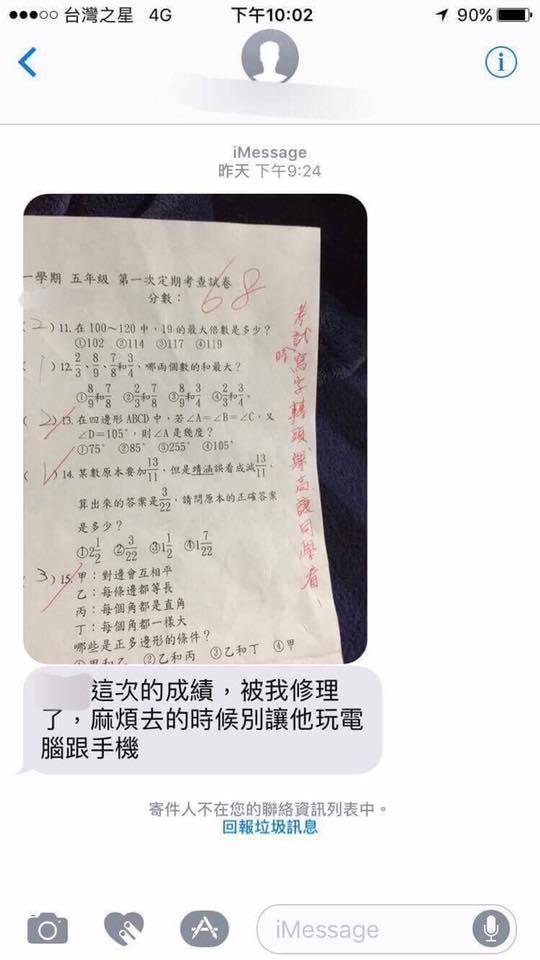 台灣之星 4G 下午10:02 90%
iMessage
昨天 下午9:24
一學期 五年級 第一次定期考查試卷
分數： 68
(2) 11. 在 100～120 中，19 的最大倍數是多少？
①102 ②114 ③117 ④119
1) 12. 2/3、8/9、7/8 和 3/4，哪兩個數的和最大？
①8/9和7/8 ②2/3和7/8 ③8/9和3/4 ④2/3和3/4。
(2) 13. 在四邊形 ABCD 中，若∠A=∠B=∠C，又
∠D=105°，則∠A 是幾度？
①75° ②85° ③255° ④105°
(1) 14. 某數原本要加13/11，但是靖涵誤看成減13/11，
算出來的答案是3/22，請問原本的正確答案
是多少？
①2 1/2 ②3/22 ③1 1/2 ④1 7/22
3) 15. 甲：對邊會互相平
乙：每條邊都等長
丙：每個角都是直角
丁：每個角都一樣大
哪些是正多邊形的條件？
①甲和乙 ②乙和丙 ③乙和丁 ④甲
考試時寫字轉頭
讓同學看、
這次的成績，被我修理
了，麻煩去的時候別讓他玩電
腦跟手機
寄件人不在您的聯絡資訊列表中。
回報垃圾訊息
iMessage